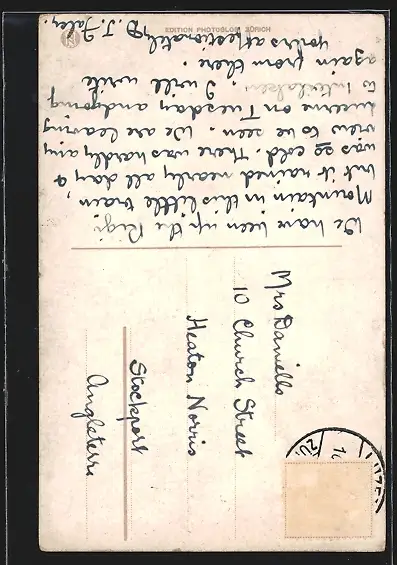 We have been up the Rigi
Mountain in this little train,
but it rained nearly all day &
was so cold. There was hardly any
view to be seen. We are leaving
Lucerne on Tuesday and going
to Interlaken. I will write
again from there.
Yours affectionately
EDITION PHOTOGLOB ZÜRICH
Mrs Daniells
10 Church Street
Heaton Norris
Stockport
Angleterre